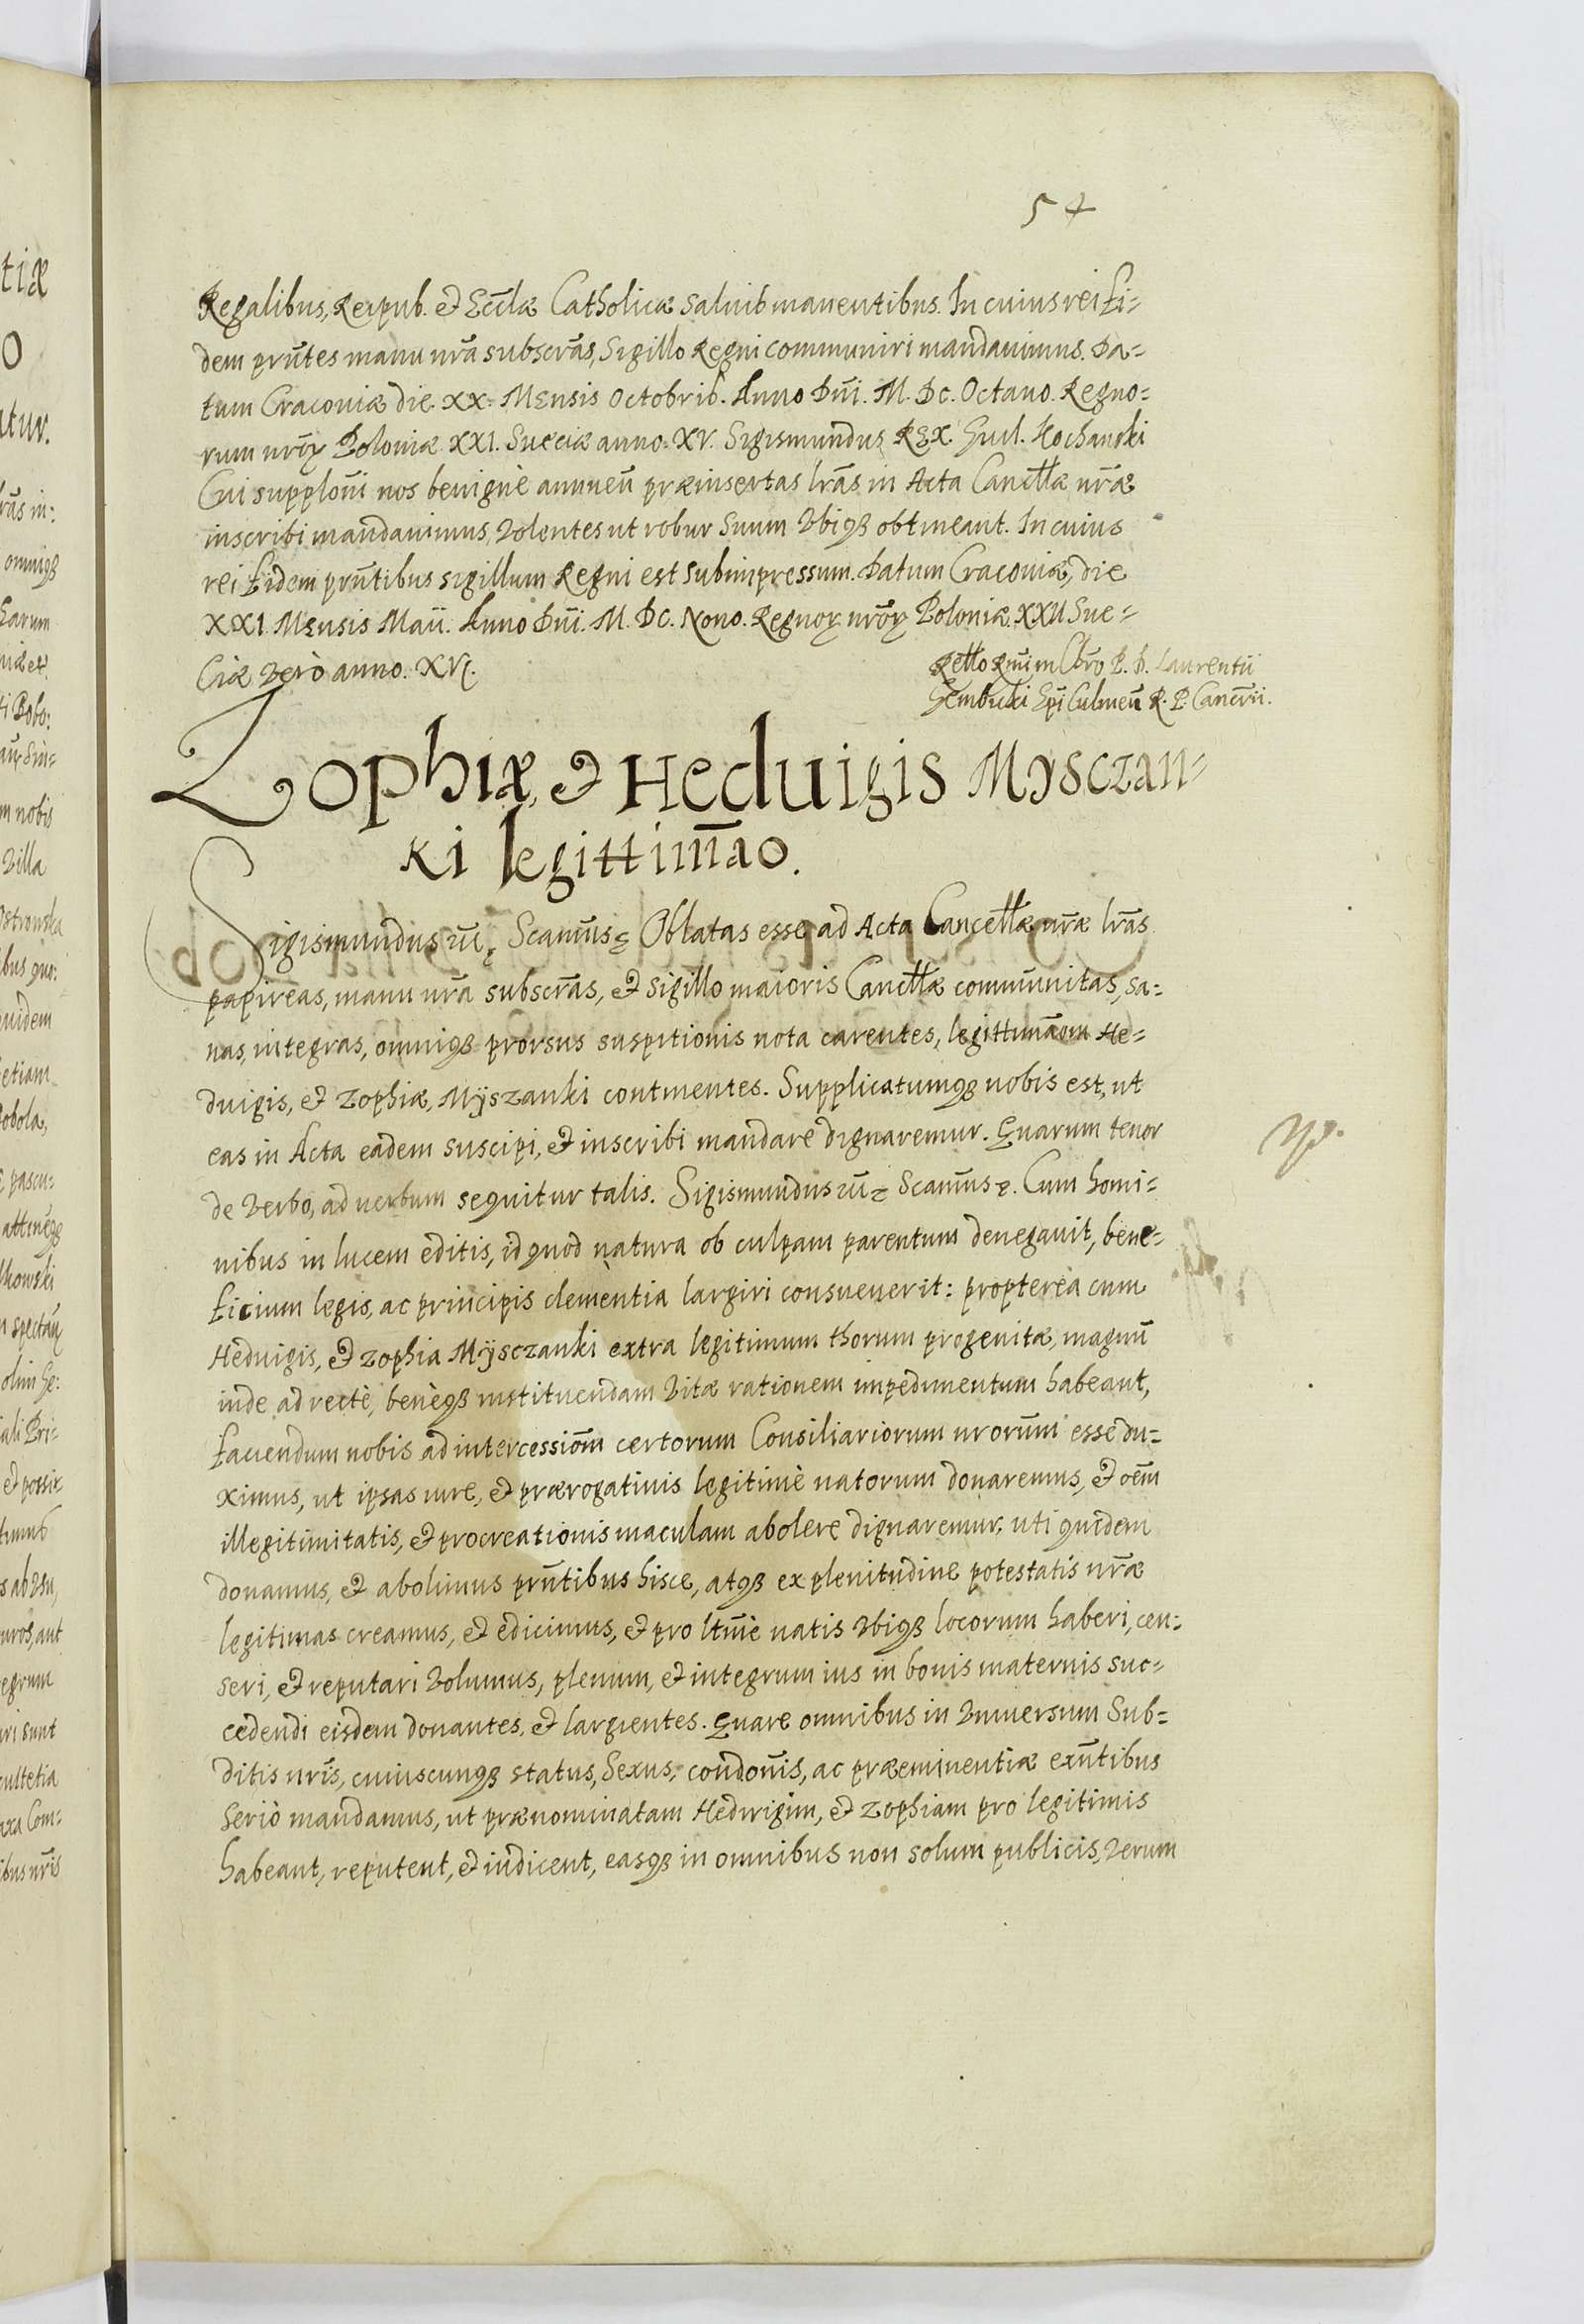 54
Regalibus, Reipub. et Eccłæ Catholicæ salvis manentibus. In cuius rei fi-
dem prñtes manu nr̃a subscr̃as, Sigillo Regni communiri mandavimus. Da-
tum Cracoviæ die. XX. Mensis Octobris. Anno Dñi. M. DC. Octavo. Regno-
rum nrõꝝ Poloniæ XXI. Sueciæ anno. XV. Sigismundus REX. Kochanski
Cui supplõni nos benignè annueñ præinsertas lr̃as in Acta Cancłłæ nr̃æ
inscribi mandavimus, volentes ut robur suum ubiqȝ obtineant. In cuius
rei fidem prñtibus sigillum Regni est subimpressum. Datum Cracoviæ, die
XXI. Mensis Maii. Anno Dñi. M. DC. Nono. Regnoꝝ nrõꝝ Poloniæ. XXII Sue-
ciæ verò anno. XVI.
Rełło Rñim P. D. Laurentii
Gembicki Epi Culmeñ R. P. Cancrii.
Zophiæ, et Heduigis Mysczan-
ki legittim̃ao.
Sigismundus Scam̃us Oblatas esse ad Acta Cancełłæ nr̃æ lr̃as
papireas, manu nr̃a subscr̃as, et sigillo maioris Cancłłæ communitas, sa-
nas, integras, omniqȝ prorsus suspitionis nota carentes, legittimãom He-
duigis, et Zophiæ, Myszanki continentes. Supplicatumqȝ nobis est, ut
eas in Acta eadem suscipi, et inscribi mandare dignaremur. Quarum tenor
de verbo, ad verbum sequitur talis. Sigismundus Scam̃us. Cum homi-
nibus in lucem editis, id quod natura ob culpam parentum denegavit, bene-
ficium legis, ac principis clementia largiri consueverit: propterea cum
Heduigis, et Zophia Mysczanki extra legitimum thorum progenitæ, magnũ
inde ad rectè, benèqȝ instituendam vitæ rationem impedimentum habeant,
faciendum nobis ad intercessiõm certorum Consiliariorum nrorũm esse du-
ximus, ut ipsas iure, et prærogativis legitimè natorum donaremus, et oẽm
illegitimitatis, et procreationis maculam abolere dignaremur, uti quidem
donamus, et abolimus prñtibus hisce, atqȝ ex plenitudine potestatis nr̃æ
legitimas creamus, et edicimus, et pro ltm̃è natis ubiqȝ locorum haberi, cen-
seri, et reputari volumus, plenum, et integrum ius in bonis maternis suc-
cedendi eisdem donantes, et largientes. Quare omnibus in universum Sub-
ditis nr̃is, cuiuscunqȝ status, sexus, condõnis, ac præeminentiæ exñtibus
seriò mandamus, ut prænominatam Hedwigim, et Zophiam pro legitimis
habeant, reputent, et iudicent, easqȝ in omnibus non solum publicis, verum